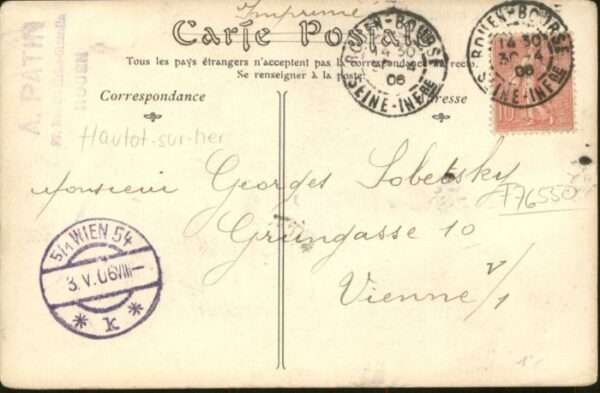 Imprimé
Carte Postale
Tous les pays étrangers n'acceptent pas la correspondance au recto.
Se renseigner à la poste.
Correspondance
Adresse
A. PATIN
ROUEN
ROUEN-BOURSE
14 30
30 4
06
SEINE-INFRE
ROUEN-BOURSE
14 30
30 4
06
SEINE-INFRE
10
Hautot-sur-mer
Monsieur Georges Sobetsky
F76550
Grüngasse 10
Vienne V/1
5/1 WIEN 54
3.V.06/VIII-
* k *